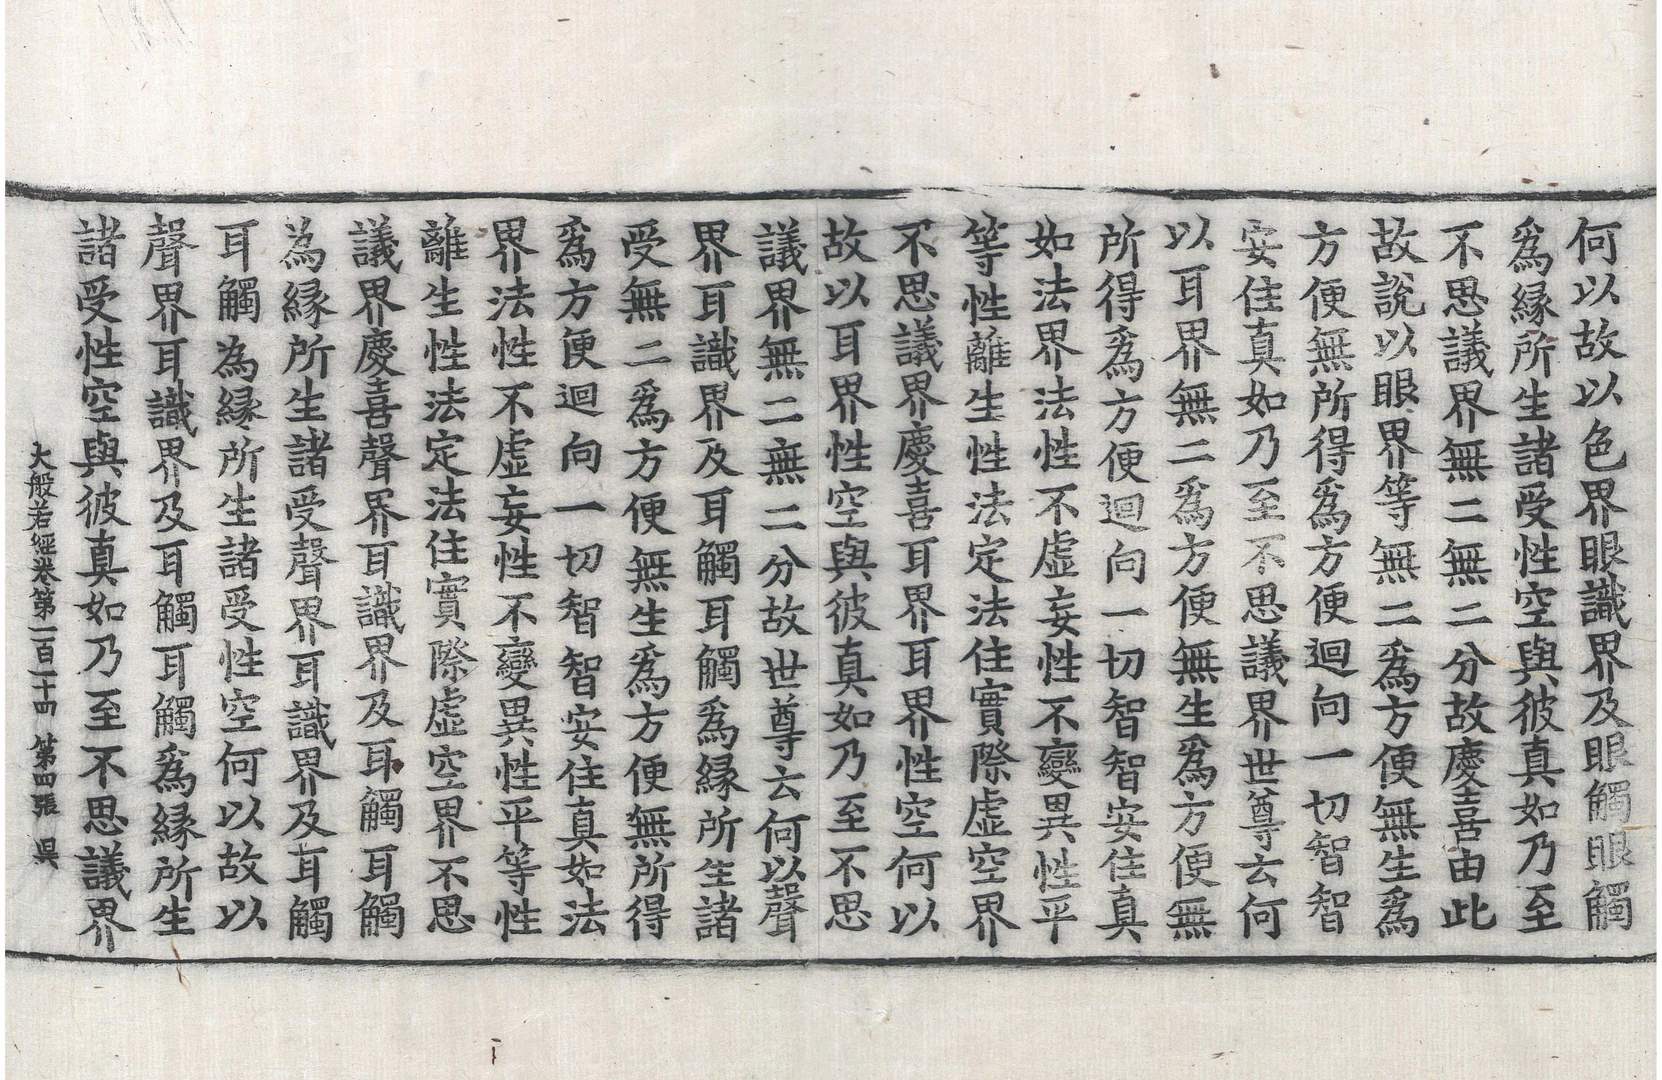 何以故以色界眼識界及眼觸眼觸
爲緣所生諸受性空與彼真如乃至
不思議界無二無二分故慶喜由此
故說以眼界等無二爲方便無生爲
方便無所得爲方便迴向一切智智
安住真如乃至不思議界世尊云何
以耳界無二爲方便無生爲方便無
所得爲方便迴向一切智智安住真
如法界法性不虛妄性不變異性平
等性離生性法定法住實際虛空界
不思議界慶喜耳界耳界性空何以
故以耳界性空與彼真如乃至不思
議界無二無二分故世尊云何以聲
界耳識界及耳觸耳觸爲緣所生諸
受無二爲方便無生爲方便無所得
爲方便迴向一切智智安住真如法
界法性不虛妄性不變異性平等性
離生性法定法住實際虛空界不思
議界慶喜聲界耳識界及耳觸耳觸
為緣所生諸受聲界耳識界及耳觸
耳觸為緣所生諸受性空何以故以
聲界耳識界及耳觸耳觸爲緣所生
諸受性空與彼真如乃至不思議界
大般若經卷第一百二十四 第四張 昃